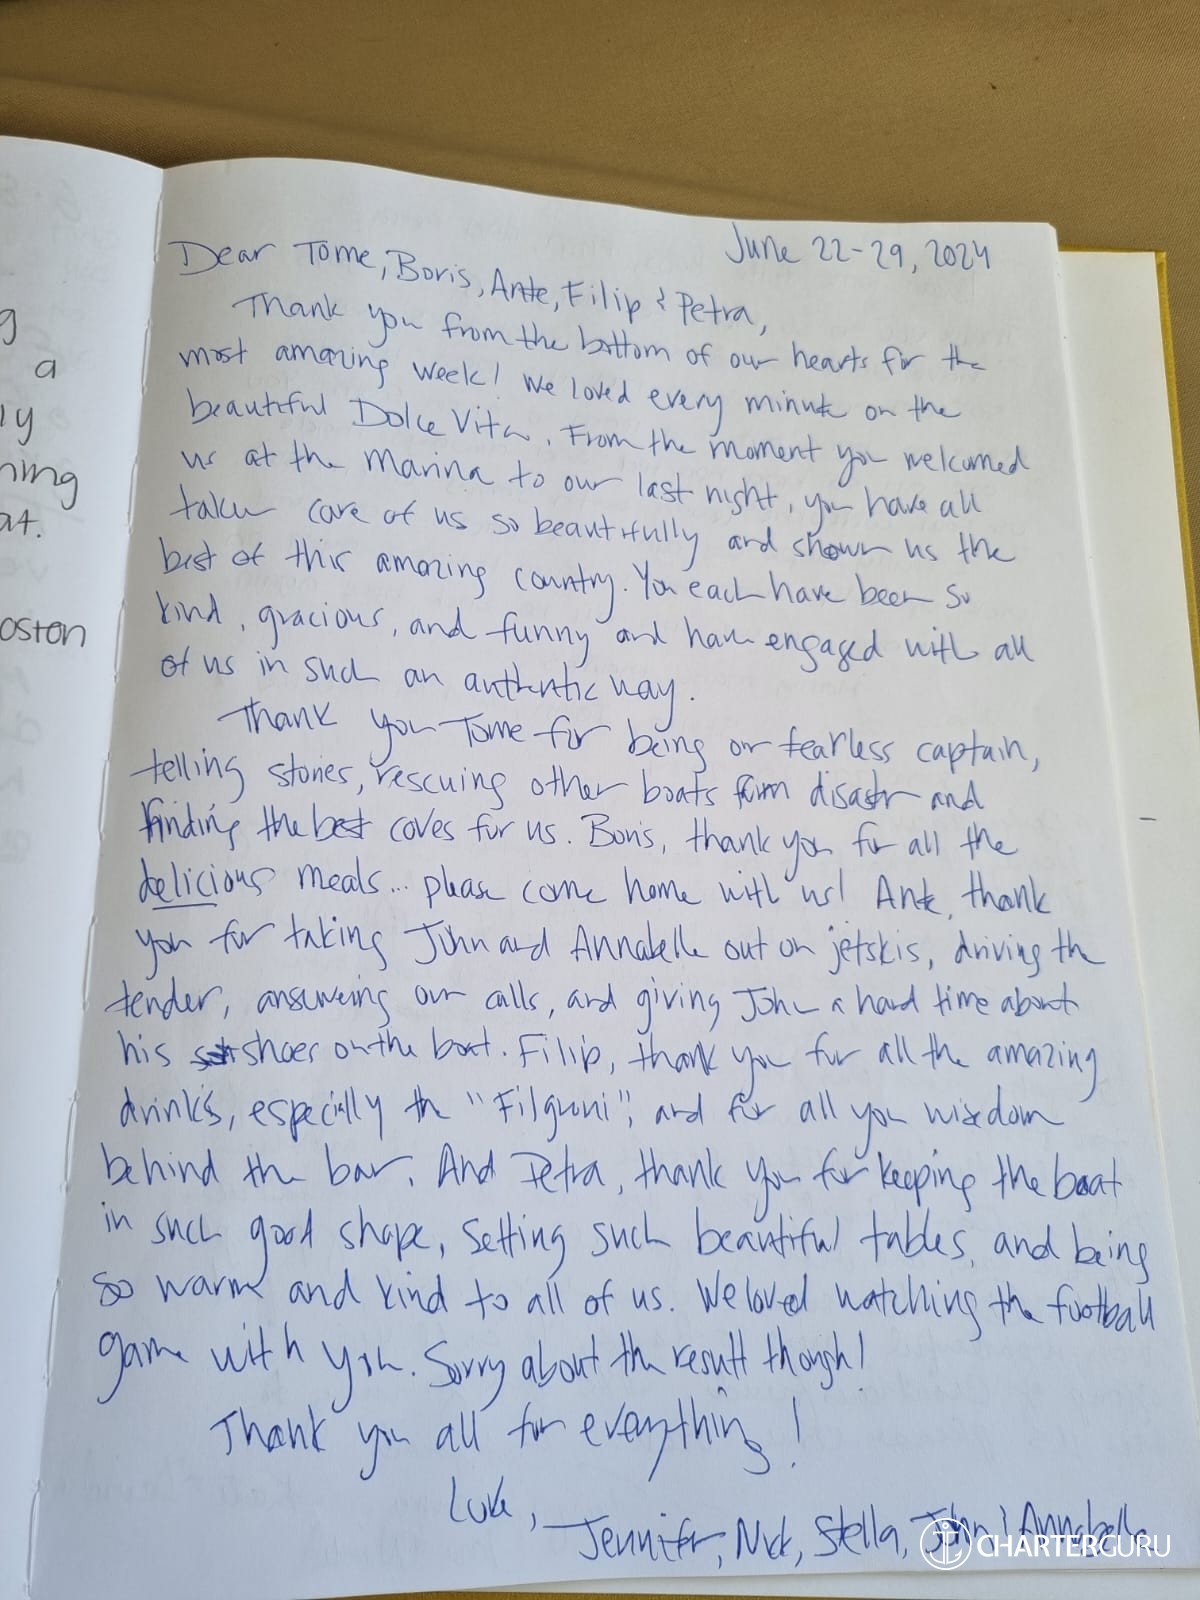 g
a
ly
ning
at.
oston
June 22-29, 2024
Dear Tome, Boris, Ante, Filip & Petra,
Thank you from the bottom of our hearts for the
most amazing week! We loved every minute on the
beautiful Dolce Vita. From the moment you welcomed
us at the marina to our last night, you have all
taken care of us so beautifully and shown us the
best of this amazing country. You each have been so
kind, gracious, and funny and have engaged with all
of us in such an authentic way.
Thank you Tome for being our fearless captain,
telling stories, rescuing other boats from disaster and
finding the best coves for us. Boris, thank you for all the
delicious meals... please come home with us! Ante, thank
you for taking John and Annabelle out on jetskis, driving the
tender, answering our calls, and giving John a hard time about
his shoes on the boat. Filip, thank you for all the amazing
drinks, especially the "Filgroni", and for all you wisdom
behind the bar. And Petra, thank you for keeping the boat
in such good shape, setting such beautiful tables, and being
so warm and kind to all of us. We loved watching the football
game with you. Sorry about the result though!
Thank you all for everything!
Love,
Jennifer, Nick, Stella, John & Annabelle
CHARTERGURU